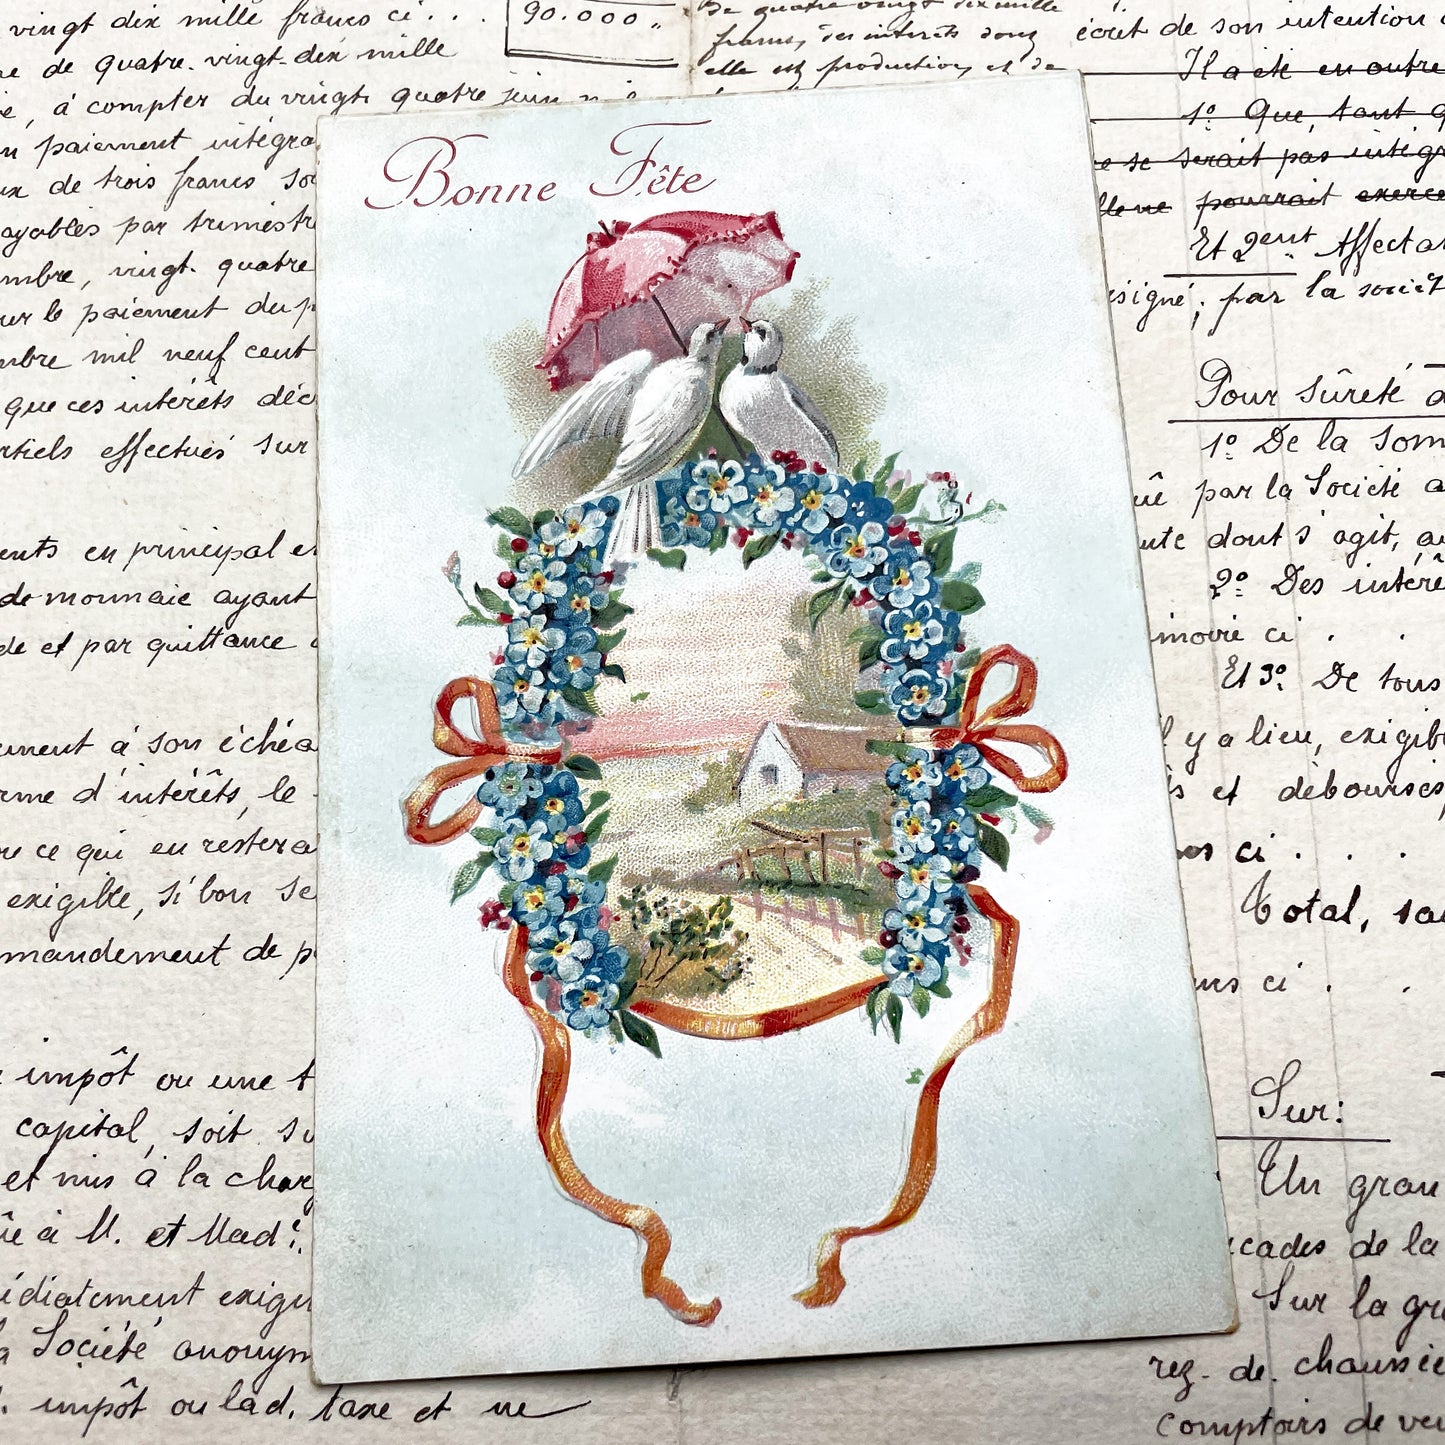 vingt dix mille francs ci . . .
90.000 "
de quatre-vingt-dix mille
, à compter du vingt quatre juin
paiement intégra
de trois francs
ayables par trimestr
mbre, vingt-quatre
le paiement du
mbre mil neuf cent
que ces intérêts
effectués sur
en principal
de monnaie ayant
de et par quittance
à son échéa
d'intérêts, le
ce qui en restera
exigible, si bon
mandement de
De quatre vingt dix mille
francs, des intérêts dont
elle est production, et de
Bonne Fête
impôt ou une
capital, soit
et mis à la
à M. et Mad.
exigi
Société anonym
impôt ou lad. taxe et ne
écrit de son intention
Il a été en outre
1º Que, tant
se serait pas intég
pourrait exerce
Et 2ent Affecta
signé, par la sociét
Pour sûreté
1º De la Som
par la Société
dont s'agit,
2º Des intérê
ci . .
Et 3º. De tous
y a lieu, exigib
et débourses
ci . . .
Total, sau
ci . .
Sur:
Un gran
cades de la
Sur la gr
rez-de-chaussée
comptoirs de